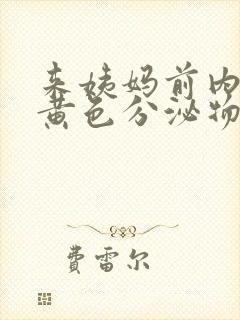 来姨妈前内
黄色分泌物
费雷尔